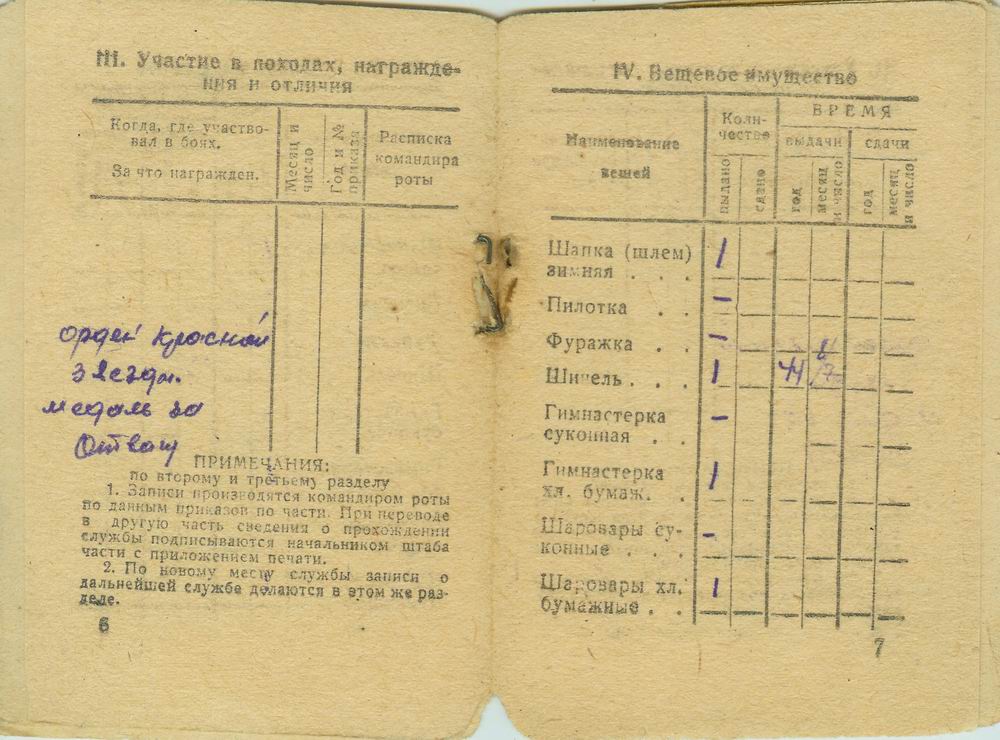 III. Участие в походах, награжде-
ния и отличия
Когда, где участво-
вал в боях.
За что награжден.
Месяц и
число
Год и №
приказа
Расписка
командира
роты
орден Красной
Звезды.
медаль за
Отвагу
ПРИМЕЧАНИЯ:
по второму и третьему разделу
1. Записи производятся командиром роты
по данным приказов по части. При переводе
в другую часть сведения о прохождении
службы подписываются начальником штаба
части с приложением печати.
2. По новому месту службы записи о
дальнейшей службе делаются в этом же раз-
деле.
6
IV. Вещевое имущество
Наименование
вещей
Коли-
чество
ВРЕМЯ
выдачи
сдачи
выдано
сдано
год
месяц
и число
год
месяц
и число
Шапка (шлем)
зимняя . . . 1
Пилотка . . –
Фуражка . . –
Шинель . . . 1 44
Гимнастерка –
суконная . .
Гимнастерка 1
хл. бумаж. .
Шаровары су- -
конные . . .
Шаровары хл. 1
бумажные . .
7